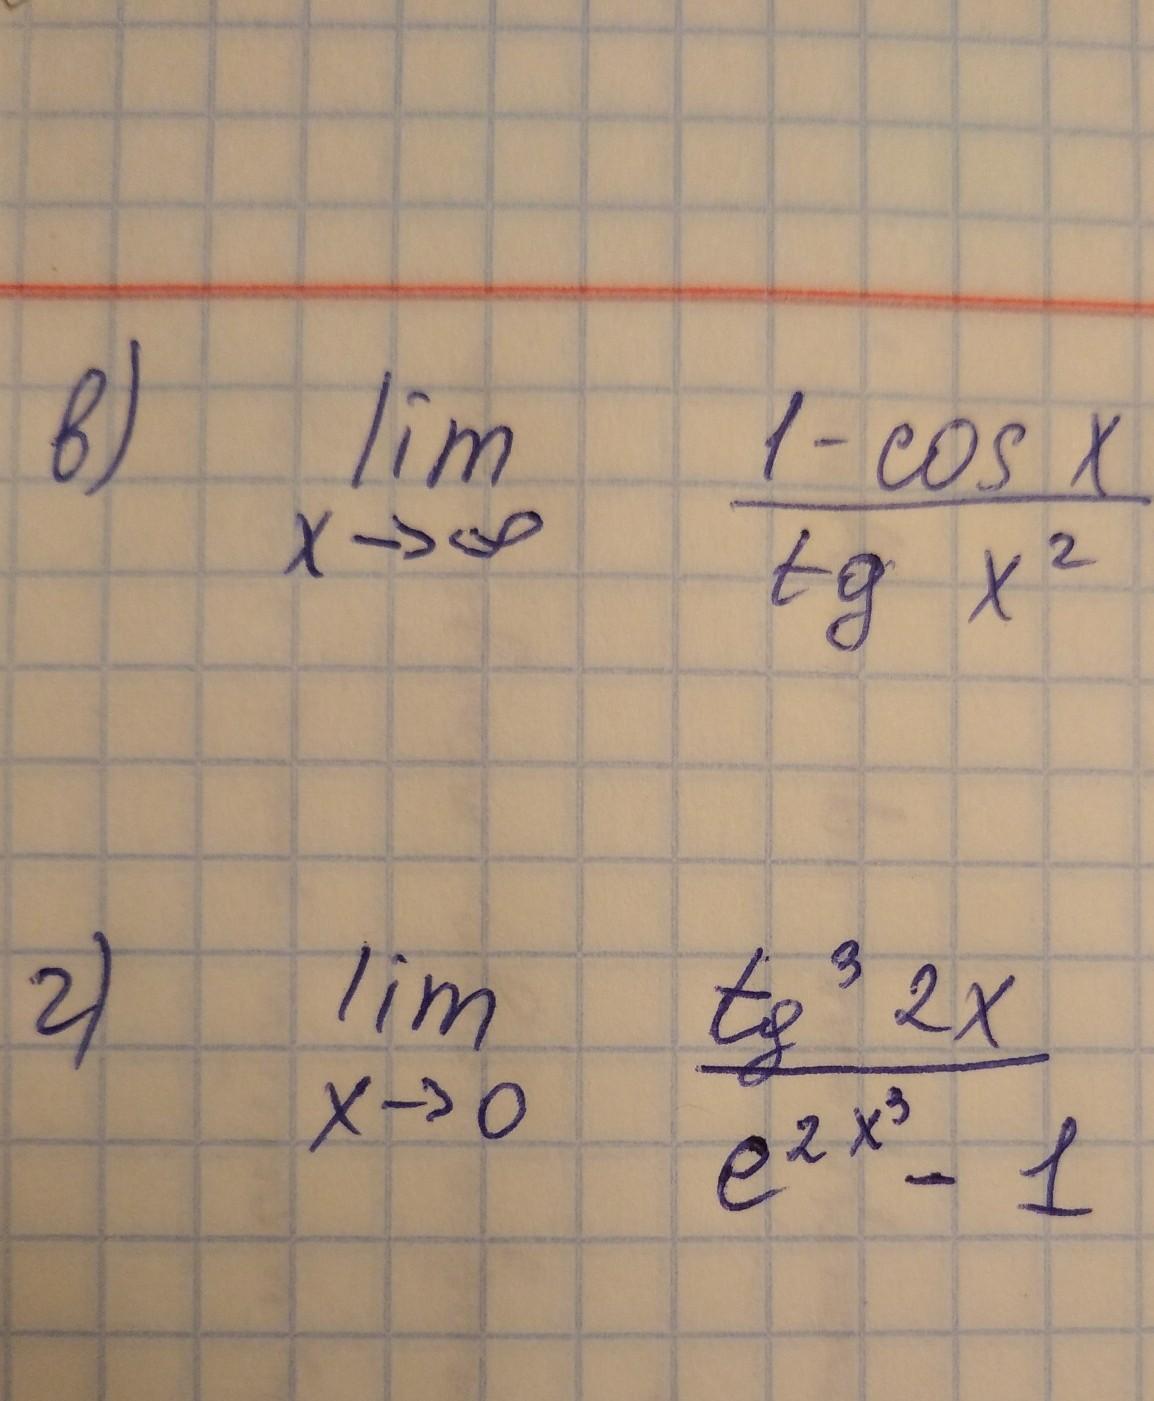 в) lim 1-cos x
x→∞ tg x²
г) lim tg³ 2x
x→0 e^{2x³} - 1